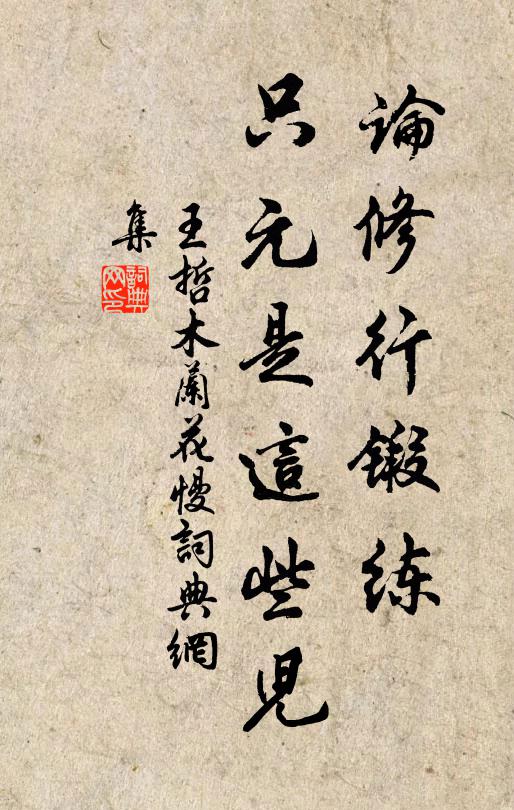 論修行鍛练
只元是這些児
王哲木蘭花慢詞典網
集
詞典
网印